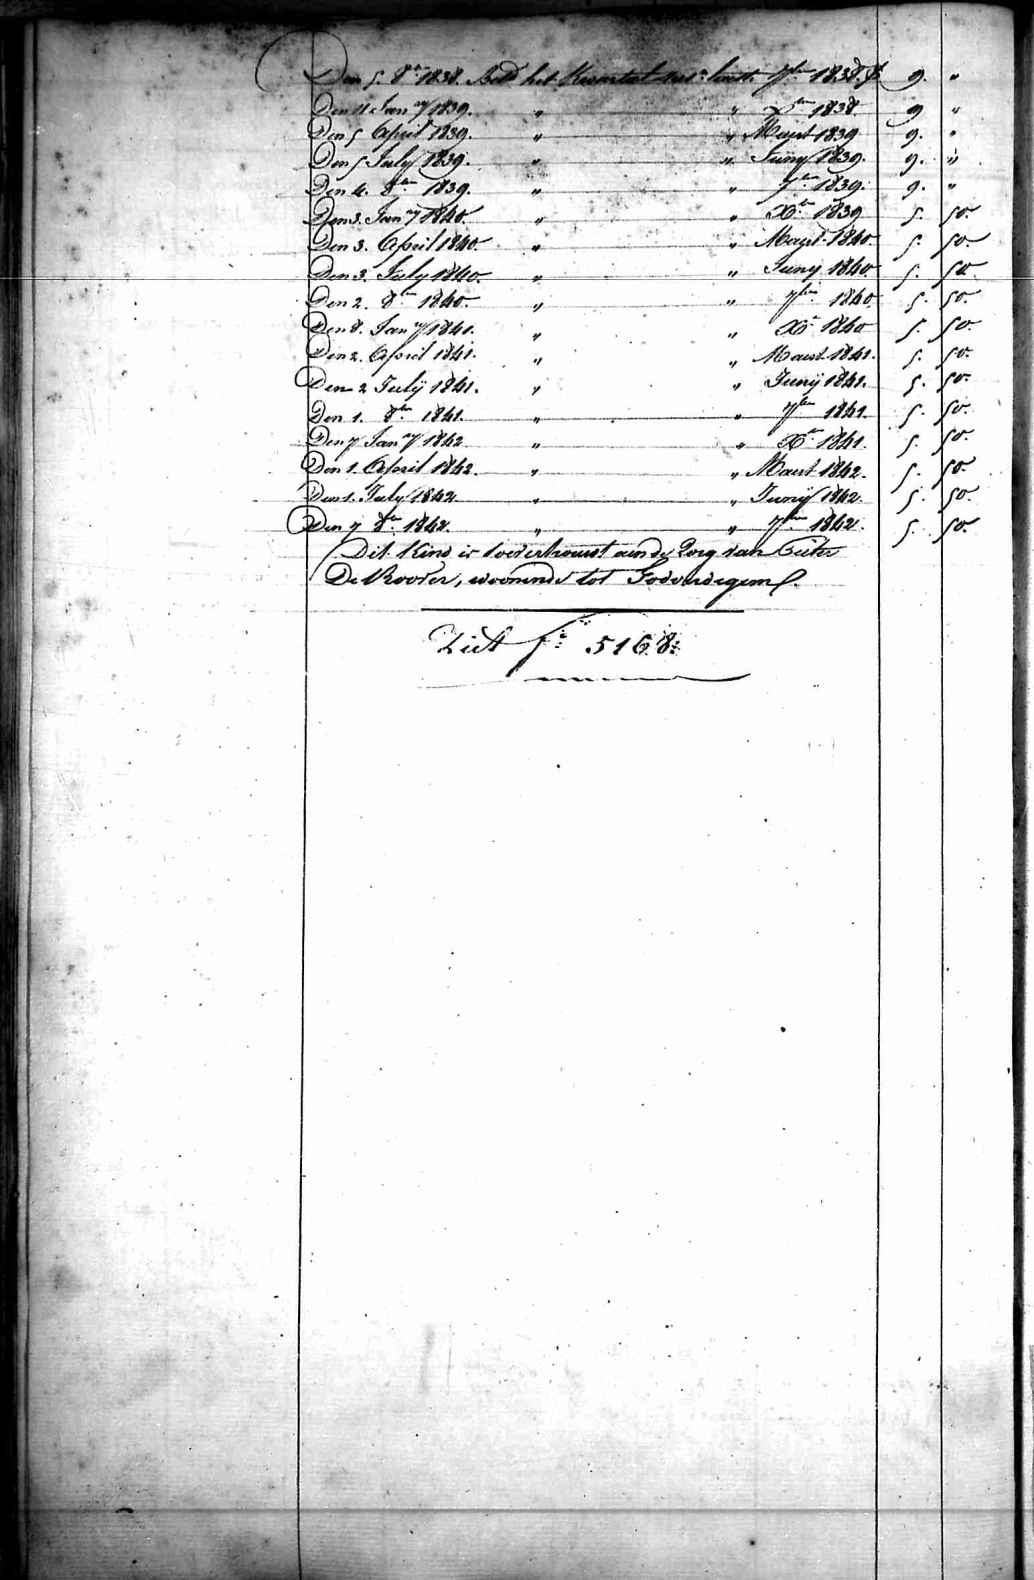 Den 5. 8ber 1838. Betd het Kwartael laatst 7ber 1838. fs 9. "
Den 11 Janry 1839. " " Xber 1838 9 "
Den 5 April 1839. " " Maart 1839 9. "
Den 5 July 1839. " " Juny 1839. 9. "
Den 4. 8ber 1839. " " 7ber 1839. 9. "
Den 3. Janry 1840. " " Xber 1839 5. 50.
Den 3. April 1840 " " Maart 1840. 5. 50
Den 3. July 1840. " " Juny 1840 5. 50
Den 2. 8ber 1840. " " 7ber 1840 5. 50.
Den 8. Janry 1841. " " Xber 1840 5. 50.
Den 2. April 1841. " " Maart 1841. 5. 50.
Den 2 July 1841. " " Juny 1841. 5. 50.
Den 1. 8ber 1841. " " 7ber 1841. 5. 50.
Den 7 Janry 1842 " " Xber 1841. 5. 50.
Den 1. April 1842. " " Maart 1842. 5. 50
Den 1. July 1842 " " Juny 1842. 5. 50.
Den 7 8ber 1842. " " 7ber 1842. 5. 50.
Dit Kind is toevertrouwt aen de Zorg van Pieter
De Roover, woonende tot Godverdegem.
Ziet f° 5168: